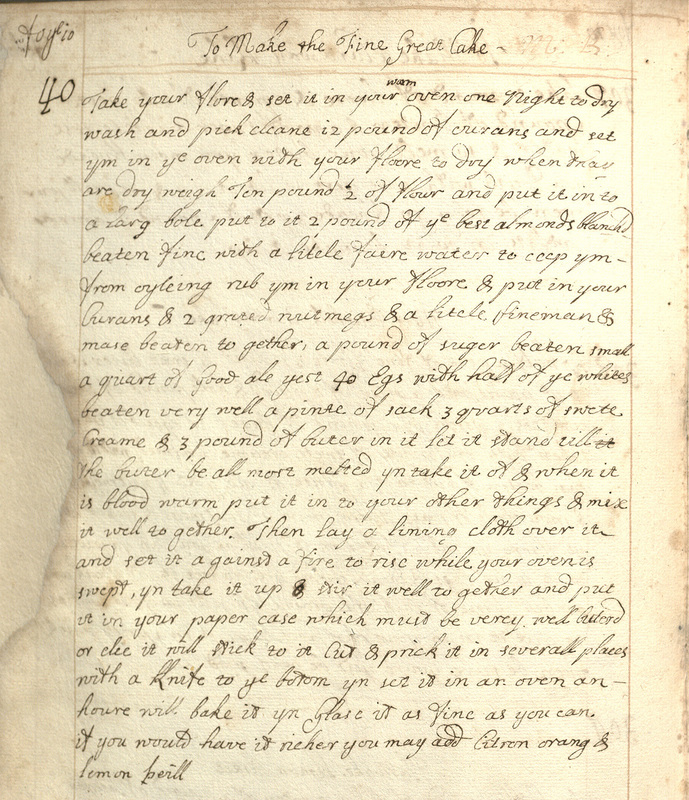 ffoylio
To Make the Fine Great Cake
40
warm
Take your flore & set it in your oven one Night to dry
wash and pick cleane 12 pound of curans and set
ym in ye oven with your floore to dry when thay
are dry weigh Ten pound ½ of flour and put it in to
a larg bole put to it 2 pound of ye best almonds blanchd
beaten fine with a litele faire water to ceep ym -
from oyleing rub ym in your floore & put in your
Curans & 2 grated nutmegs & a litele sineman &
mase beaten to gether, a pound of suger beaten small
a quart of Good ale yest 40 Egs with half of ye whites
beaten very well a pinte of sack 3 quarts of swete
Creame & 3 pound of buter in it let it stand till it
the buter be all most melted yn take it of & when it
is blood warm put it in to your other things & mix
it well to gether. Then lay a lining cloth over it
and set it against a fire to rise while your oven is
swept, yn take it up & stir it well to gether and put
it in your paper case which must be verey well buterd
or elce it will stick to it Cut & prick it in severall places
with a Knife to ye botom yn set it in an oven an -
houre will bake it yn Glase it as fine as you can.
if you would have it richer you may add Citron orang &
lemon peill